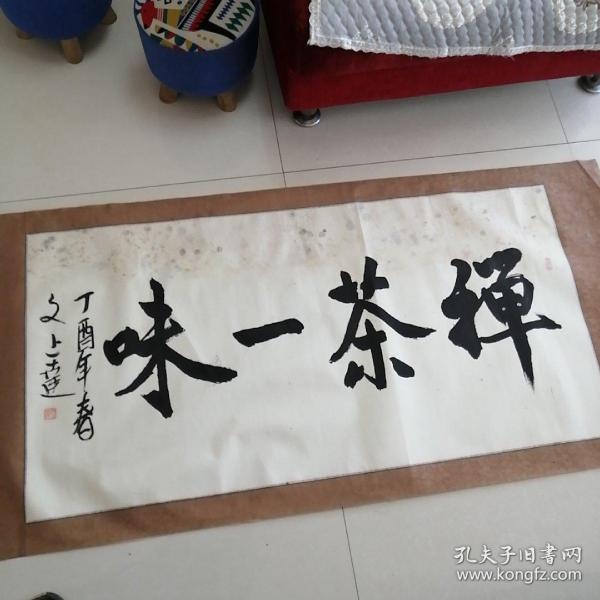 禅茶一味
丁酉年春
孔夫子旧书网
www.kongfz.com